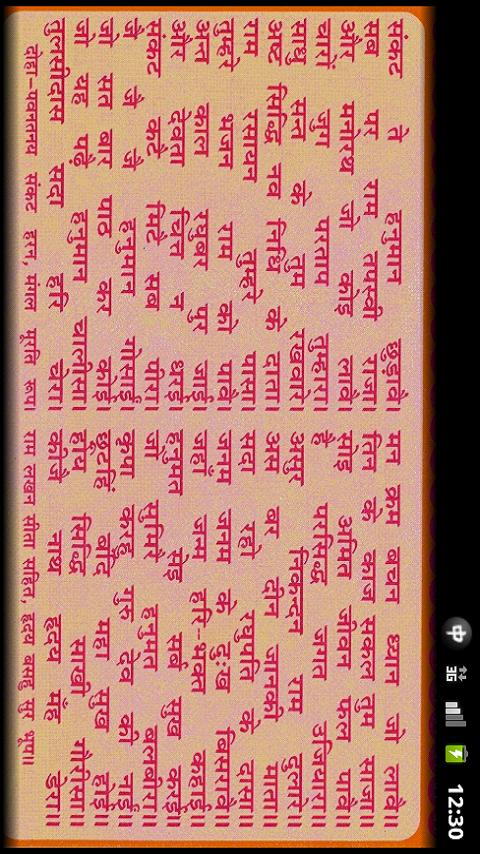 3G 12:30
संकट ते हनुमान छुड़ावै। मन क्रम बचन ध्यान जो लावै॥
सब पर राम तपस्वी राजा। तिन के काज सकल तुम साजा॥
और मनोरथ जो कोइ लावै। सोइ अमित जीवन फल पावै॥
चारों जुग परताप तुम्हारा। है परसिद्ध जगत उजियारा॥
साधु सन्त के तुम रखवारे। असुर निकन्दन राम दुलारे॥
अष्ट सिद्धि नव निधि के दाता। अस बर दीन जानकी माता॥
राम रसायन तुम्हरे पासा। सदा रहो रघुपति के दासा॥
तुम्हरे भजन राम को पावै। जनम जनम के दुःख बिसरावै॥
अन्त काल रघुबर पुर जाई। जहाँ जन्म हरि-भक्त कहाई॥
और देवता चित्त न धरई। हनुमत सेइ सर्ब सुख करई॥
संकट कटै मिटै सब पीरा। जो सुमिरै हनुमत बलबीरा॥
जै जै जै हनुमान गोसाईं। कृपा करहु गुरु देव की नाईं॥
जो सत बार पाठ कर कोई। छूटहिं बंदि महा सुख होई॥
जो यह पढ़ै हनुमान चालीसा। होय सिद्धि साखी गौरीसा॥
तुलसीदास सदा हरि चेरा। कीजै नाथ हृदय महँ डेरा॥
दोहा-पवनतनय संकट हरन, मंगल मूरति रूप। राम लखन सीता सहित, हृदय बसहु सुर भूप॥